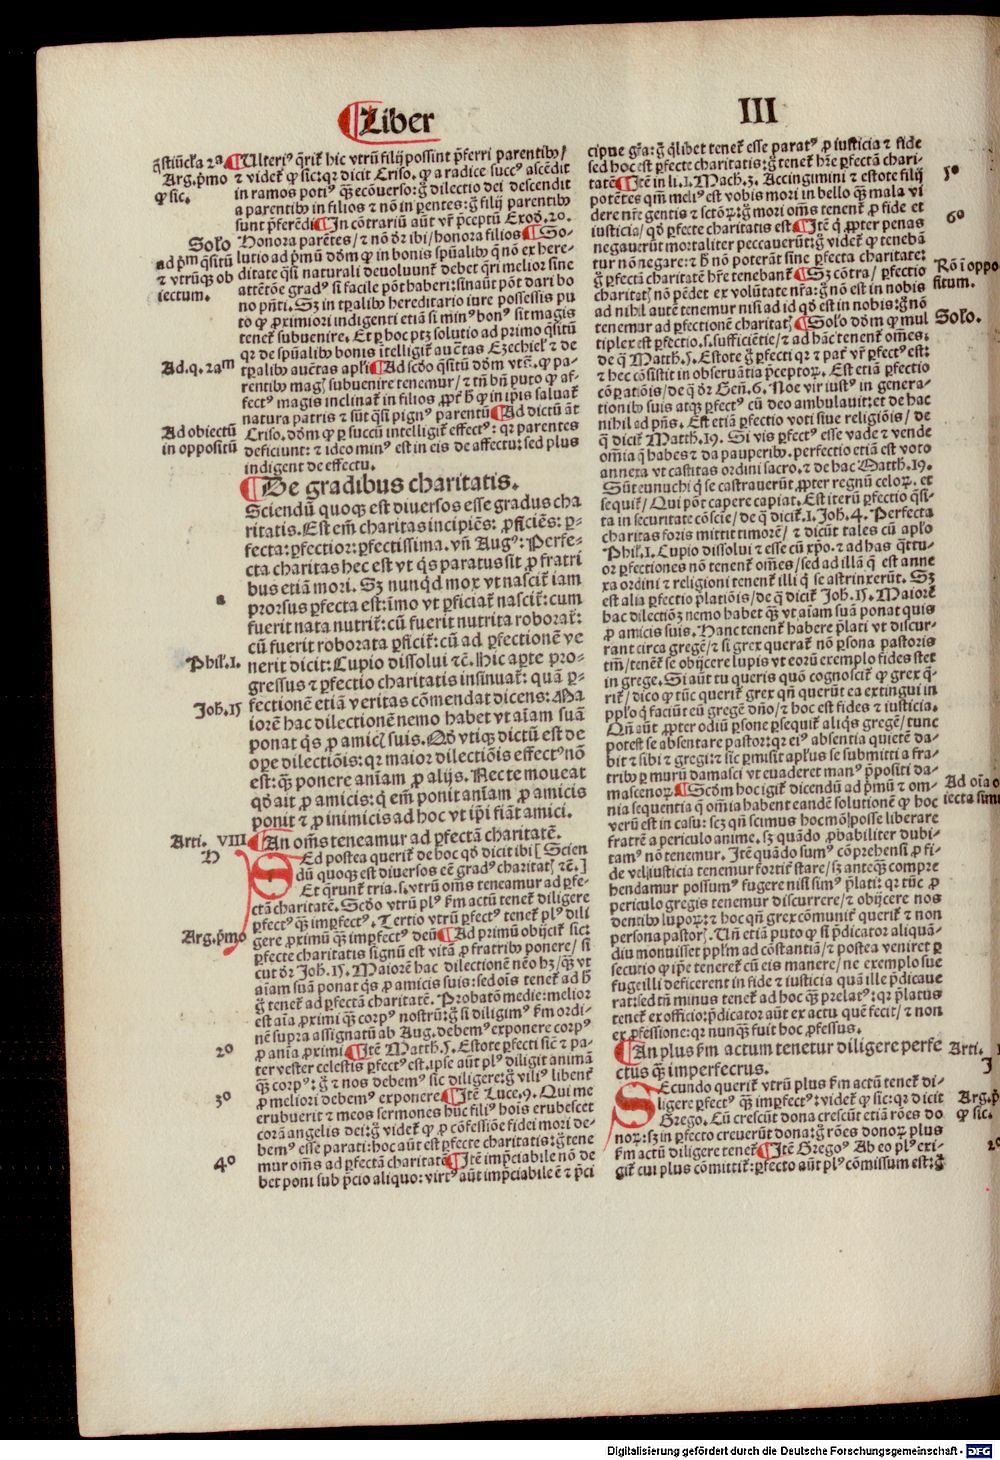 Liber III
q̄stiūcła 2ª
Arg. p̄mo
ꝙ sic.
Ulteriꝰ q̄rit̃ hic vtrū filij possint p̄ferri parentibꝰ/
⁊ videt̃ ꝙ sic: qꝛ dicit Criso. ꝙ a radice succꝰ ascēdit
in ramos potiꝰ q̄ꝫ ecōuerso: ḡ dilectio dei descendit
a parentibꝰ in filios ⁊ nō in pentes: ḡ filij parentibꝰ
sunt p̄ferēdi ¶ In cōtrariū aūt vr̃ p̄ceptū Exoδ. 20.
Solo
Honora parētes/ ⁊ nō dr̃ ibi/ honora filios ¶ So-
ad p̄m q̄sitū
⁊ vtrūqꝫ ob
iectum.
lutio ad pꝛimū dōm ꝙ in bonis spūalibꝰ q̄ nō ex here-
ditate q̄si naturali deuoluunt̃ debet q̄ri melior sine
attētōe gradꝰ si facile pōt haberi: sinaūt pōt dari bo
no pn̄ti. Sꝫ in tꝑalibꝰ hereditario iure possessis pu
to ꝙ ꝓximiori indigenti etiā si minꝰ bonꝰ sit magis
tenet̃ subuenire. Et ꝑ hoc ptꝫ solutio ad primo q̄sitū
qꝛ de spūalibꝰ bonis ītelligit̃ auc̄tas Ezechiel̃ ⁊ de
Ad. q. 2am
tꝑalibꝰ auc̄tas apl̄i ¶ Ad scđo q̄sitū dōm vtꝰ. ꝙ pa-
rentibꝰ magꝭ subuenire tenemur/ ⁊ tn̄ bn̄ puto ꝙ af-
fectꝰ magis inclinat̃ in filios ꝓpt̃ ħ ꝙ in ip̄is saluat̃
natura patris ⁊ sūt q̄si pignꝰ parentū ¶ Ad dictū āt
Ad obiectū
in oppositū
Criso. dōm ꝙ ꝑ succū intelligit̃ effectꝰ: qꝛ parentes
deficiunt: ⁊ ideo minꝰ est in eis de affectu: sed plus
indigent de effectu.
¶ De gradibus charitatis.
Sciendū quoqꝫ est diuersos esse gradus cha
ritatis. Est em̄ charitas incipiēs: ꝓficiēs: ꝑ-
fecta: ꝑfectior: ꝑfectissima. vn̄ Augꝰ: Perfe-
cta charitas hec est vt q̄s paratus sit ꝓ fratri
bus etiā mori. Sꝫ nunqͥd mox vt nascit̃ iam
a
prorsus ꝑfecta est: īmo vt ꝑficiat̃ nascit̃: cum
fuerit nata nutrit̃: cū fuerit nutrita roborat̃:
cū fuerit roborata ꝑficit̃: cū ad ꝑfectionē ve
Phil̃. 1.
nerit dicit: Cupio dissolui ⁊c̄. Hic apte pro-
gressus ⁊ ꝑfectio charitatis insinuat̃: quā ꝑ-
fectionē etiā veritas cōmendat dicens: Ma
Joh. 15
iorē hac dilectionē nemo habet vt aīam suā
ponat q̄s ꝓ amicꝭ suis. Qđ vtiqꝫ dictū est de
oꝑe dilectiōis: qꝛ maior dilectiōis effectꝰ nō
est: q̄ꝫ ponere aīam ꝓ alijs. Nec te moueat
qđ ait ꝓ amicis: q̄ em̄ ponit aīam ꝓ amicis
ponit ⁊ ꝓ inimicis ad hoc vt ip̄i fiāt amici.
Arti. VIII
¶ An om̄s teneamur ad ꝑfectā charitatē.
H
Sed postea querit̃ de hoc qđ dicit ibi [Scien
dū quoqꝫ est diuersos eē gradꝰ charitatꝭ ⁊c̄.]
Et q̄runt̃ tria. s. vtrū om̄s teneamur ad ꝑfe-
ctā charitatē. Scđo vtrū plꝰ ẜm actū tenet̃ diligere
ꝑfectꝰ q̄ꝫ imꝑfectꝰ. Tertio vtrū ꝑfectꝰ tenet̃ plꝰ dili
Arg. p̄mo
gere ꝓximū q̄ꝫ imꝑfectꝰ deū ¶ Ad primū obijcit̃ sic:
ꝑfecte charitatis signū est vitā ꝓ fratribꝰ ponere/ si
cut dr̃ Joh. 15. Maiorē hac dilectionē nēo hꝫ/ q̄ꝫ vt
aīam suā ponat q̄s ꝓ amicis suis: sed ois tenet̃ ad ħ
ḡ tenet̃ ad ꝑfectā charitatē. Probatō medie: melior
est aīa ꝓximi q̄ꝫ corpꝰ nostrū: ḡ si diligimꝰ ẜm ordi-
nē supra assignatū ab Aug. debemꝰ exponere corpꝰ
20
ꝓ aīa ꝓximi ¶ Itē Matth. 5. Estote ꝑfecti sic̄ ⁊ pa-
ter vester celestis ꝑfectꝰ est. ipse aūt plꝰ diligit animā
q̄ꝫ corpꝰ: ḡ ⁊ nos debemꝰ sic diligere: ḡ viliꝰ libent̃
30
ꝓ meliori debemꝰ exponere ¶ Itē Luce. 9. Qui me
erubuerit ⁊ meos sermones hūc filiꝰ hois erubescet
corā angelis dei: ḡ videt̃ ꝙ ꝓ cōfessiōe fidei mori de-
bemꝰ esse parati: hoc aūt est ꝑfecte charitatis: ḡ tene
40
mur om̄s ad ꝑfectā charitatē ¶ Itē imp̄ciabile nō de
bet poni sub p̄cio aliquo: virtꝰ aūt imp̄ciabile ē ⁊ p̄ci
cipue gr̄a: ḡ q̄libet tenet̃ esse paratꝰ ꝓ iusticia ⁊ fide
sed hoc est ꝑfecte charitatis: ḡ tenet̃ hr̄e ꝑfectā chari-
50
tatē ¶ Itē in li. 1. Mach. 3. Accingimini ⁊ estote filij
potētes qm̄ meliꝰ est vobis mori in bello q̄ꝫ mala vi
dere nr̄e gentis ⁊ sctōꝝ: ḡ mori om̄s tenent̃ ꝓ fide et
60
iusticia/ qđ ꝑfecte charitatis est ¶ Itē q̄ ꝓpter penas
negauerūt mortaliter peccauerūt: ḡ videt̃ ꝙ tenebā
tur nō negare: ⁊ ħ nō poterāt sine ꝑfecta charitate:
Rō ī oppo
situm.
ḡ ꝑfectā charitatē hr̄e tenebant̃ ¶ Sꝫ cōtra/ ꝑfectio
charitatꝭ nō pēdet ex volūtate nr̄a: ḡ nō est in nobis
ad nihil autē tenemur nisi ad id qđ est in nobis: ḡ nō
Solo.
tenemar ad ꝑfectionē charitatꝭ ¶ Solo dōm ꝙ mul
tiplex est ꝑfectio. s. sufficiētie/ ⁊ ad hāc tenent̃ om̄es:
de q̄ Matth. 5. Estote ḡ ꝑfecti qꝛ ⁊ pat̃ vr̄ ꝑfectꝰ est:
⁊ hec cōsistit in obseruātia p̄ceptoꝝ. Est etiā ꝑfectio
cōꝑatiōis/ de q̄ dr̃ Gen̄. 6. Noe vir iustꝰ in genera-
tionibꝰ suis atqꝫ ꝑfectꝰ cū deo ambulauit: et de hac
nihil ad pn̄s. Est etiā ꝑfectio voti siue religiōis/ de
q̄ dicit̃ Matth. 19. Si vis ꝑfectꝰ esse vade ⁊ vende
om̄ia q̄ habes ⁊ da pauperibꝰ. perfectio etiā est voto
annexa vt castitas ordini sacro. ⁊ de hac Matth. 19.
Sūt eunuchi q̄ se castrauerūt ꝓpter regnū celoꝝ. et
sequit̃/ Qui pōt capere capiat. Est iterū ꝑfectio q̄si-
ta in securitate cōscie/ de q̄ dicit̃. 1. Joh. 4. Perfecta
charitas foris mittit timorē/ ⁊ dicūt tales cū aplo
Phil̃. 1. Cupio dissolui ⁊ esse cū xp̄o. ⁊ ad has q̄ttu-
or ꝑfectiones nō tenent̃ om̄es/ sed ad illā q̄ est anne
xa ordini ⁊ religioni tenent̃ illi q̄ se astrinxerūt. Sꝫ
est alia ꝑfectio p̄latiōis/ de q̄ dicit̃ Joh. 15. Maiorē
hac dilectiōꝫ nemo habet q̄ꝫ vt aīam suā ponat quis
ꝓ amicis suis. Hanc tenent̃ habere p̄lati vt discur-
rant circa gregē/ ⁊ si grex querat̃ nō ꝑsona pastoris
tm̄/ tenet̃ se obijcere lupis vt eorū exemplo fides stet
in grege. Si aūt tu queris quō cognoscit̃ ꝙ grex q̄-
rit̃/ dico ꝙ tūc querit̃ grex qn̄ querūt ea extingui in
pp̄lo q̄ faciūt eū gregē dn̄o/ ⁊ hoc est fides ⁊ iusticia.
Qn̄ aūt ꝓpter odiū ꝑsone ꝑsequit̃ aliq̄s gregē/ tunc
potest se absentare pastor: qꝛ eiꝰ absentia quietē da-
bit ⁊ sibi ⁊ gregi: ⁊ sic ꝑmisit apl̄us se submitti a fra-
tribꝰ ꝑ murū damasci vt euaderet manꝰ p̄positi da-
Ad oīa o
iecta simu
mascenoꝝ. ¶ Scđm hoc igit̃ dicendū ad p̄mū ⁊ om-
nia sequentia q̄ om̄ia habent eandē solutionē ꝙ hoc
verū est in casu: scꝫ qn̄ scimus hoc mō posse liberare
fratrē a periculo anime. sꝫ quādo ꝓbabiliter dubi-
tamꝰ nō tenemur. Itē quādo sumꝰ cōprehensi ꝓ fi-
de vel iusticia tenemur fortit̃ stare/ sꝫ anteq̄ꝫ compre
hendamur possumꝰ fugere nisi simꝰ p̄lati: qꝛ tūc ꝓ
periculo gregis tenemur discurrere/ ⁊ obijcere nos
dentibꝰ lupoꝝ: ⁊ hoc qn̄ grex cōmunit̃ querit̃ ⁊ non
persona pastorꝭ. Un̄ etiā puto ꝙ si p̄dicator aliquā-
diu monuisset pp̄lm ad cōstantiā/ ⁊ postea veniret ꝑ
secutio ꝙ ip̄e teneret̃ cū eis manere/ ne exemplo sue
fuge illi deficerent in fide ⁊ iusticia quā ille p̄dicaue
rat: sed tn̄ minus tenet̃ ad hoc q̄ꝫ prelatꝰ: qꝛ p̄latus
tenet̃ ex officio: p̄dicator aūt ex actu quē fecit/ ⁊ non
ex ꝓfessione: qꝛ nunq̄ꝫ fuit hoc ꝓfessus.
Arti. I
J
¶ An plus ẜm actum tenetur diligere perfe
ctus q̄ꝫ imperfectus.
Secundo querit̃ vtrū plus ẜm actū tenet̃ di-
Arg. p̄
ꝙ sic.
ligere ꝑfectꝰ q̄ꝫ imꝑfectꝰ: videt̃ ꝙ sic: qꝛ dicit
Grego. Cū crescūt dona crescūt etiā rōes do
noꝝ: sꝫ in ꝑfecto creuerūt dona: ḡ rōes donoꝝ plus
20
ẜm actū diligere tenet̃ ¶ Itē Gregoꝰ Ab eo plꝰ exi-
git̃ cui plus cōmittit̃: ꝑfecto aūt plꝰ cōmissum est: ḡ
Digitalisierung gefördert durch die Deutsche Forschungsgemeinschaft - DFG